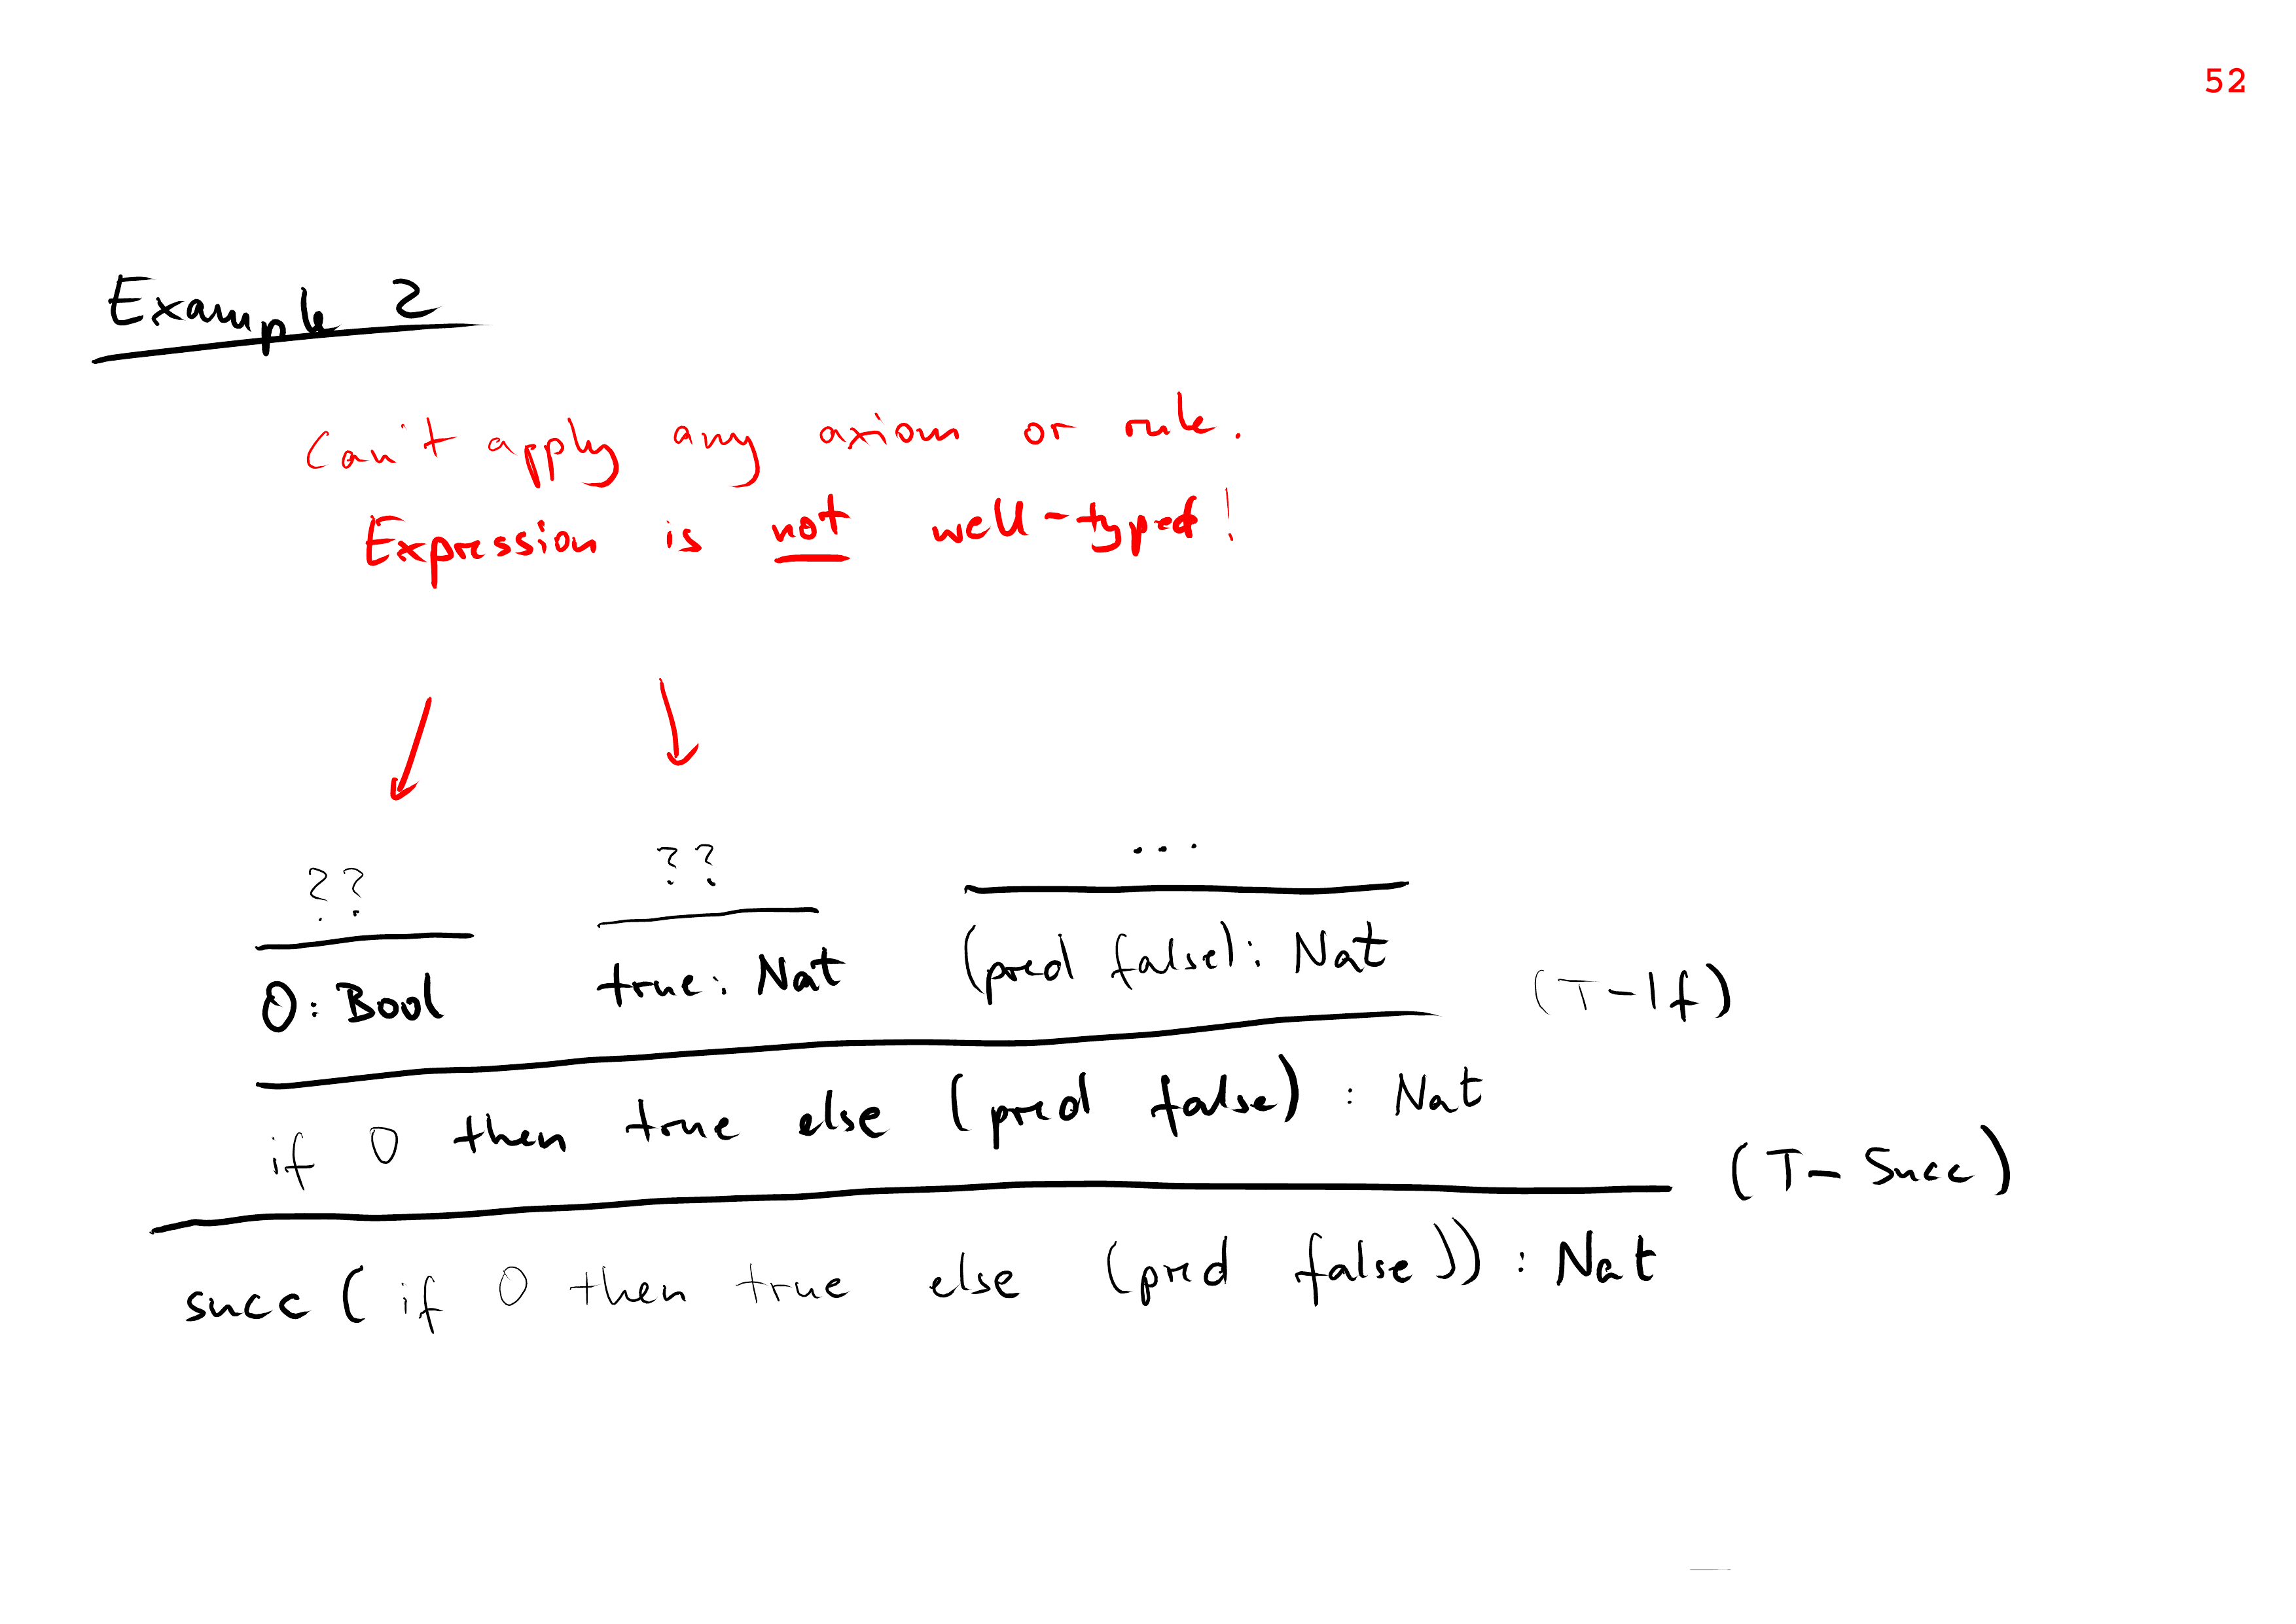 52
Example 2
Can't apply any axiom or rule.
Expression is not well-typed!
?? ?? ...
0 : Bool true : Nat (pred false) : Nat (T-If)
if 0 then true else (pred false) : Nat (T-Succ)
succ (if 0 then true else (pred false)) : Nat